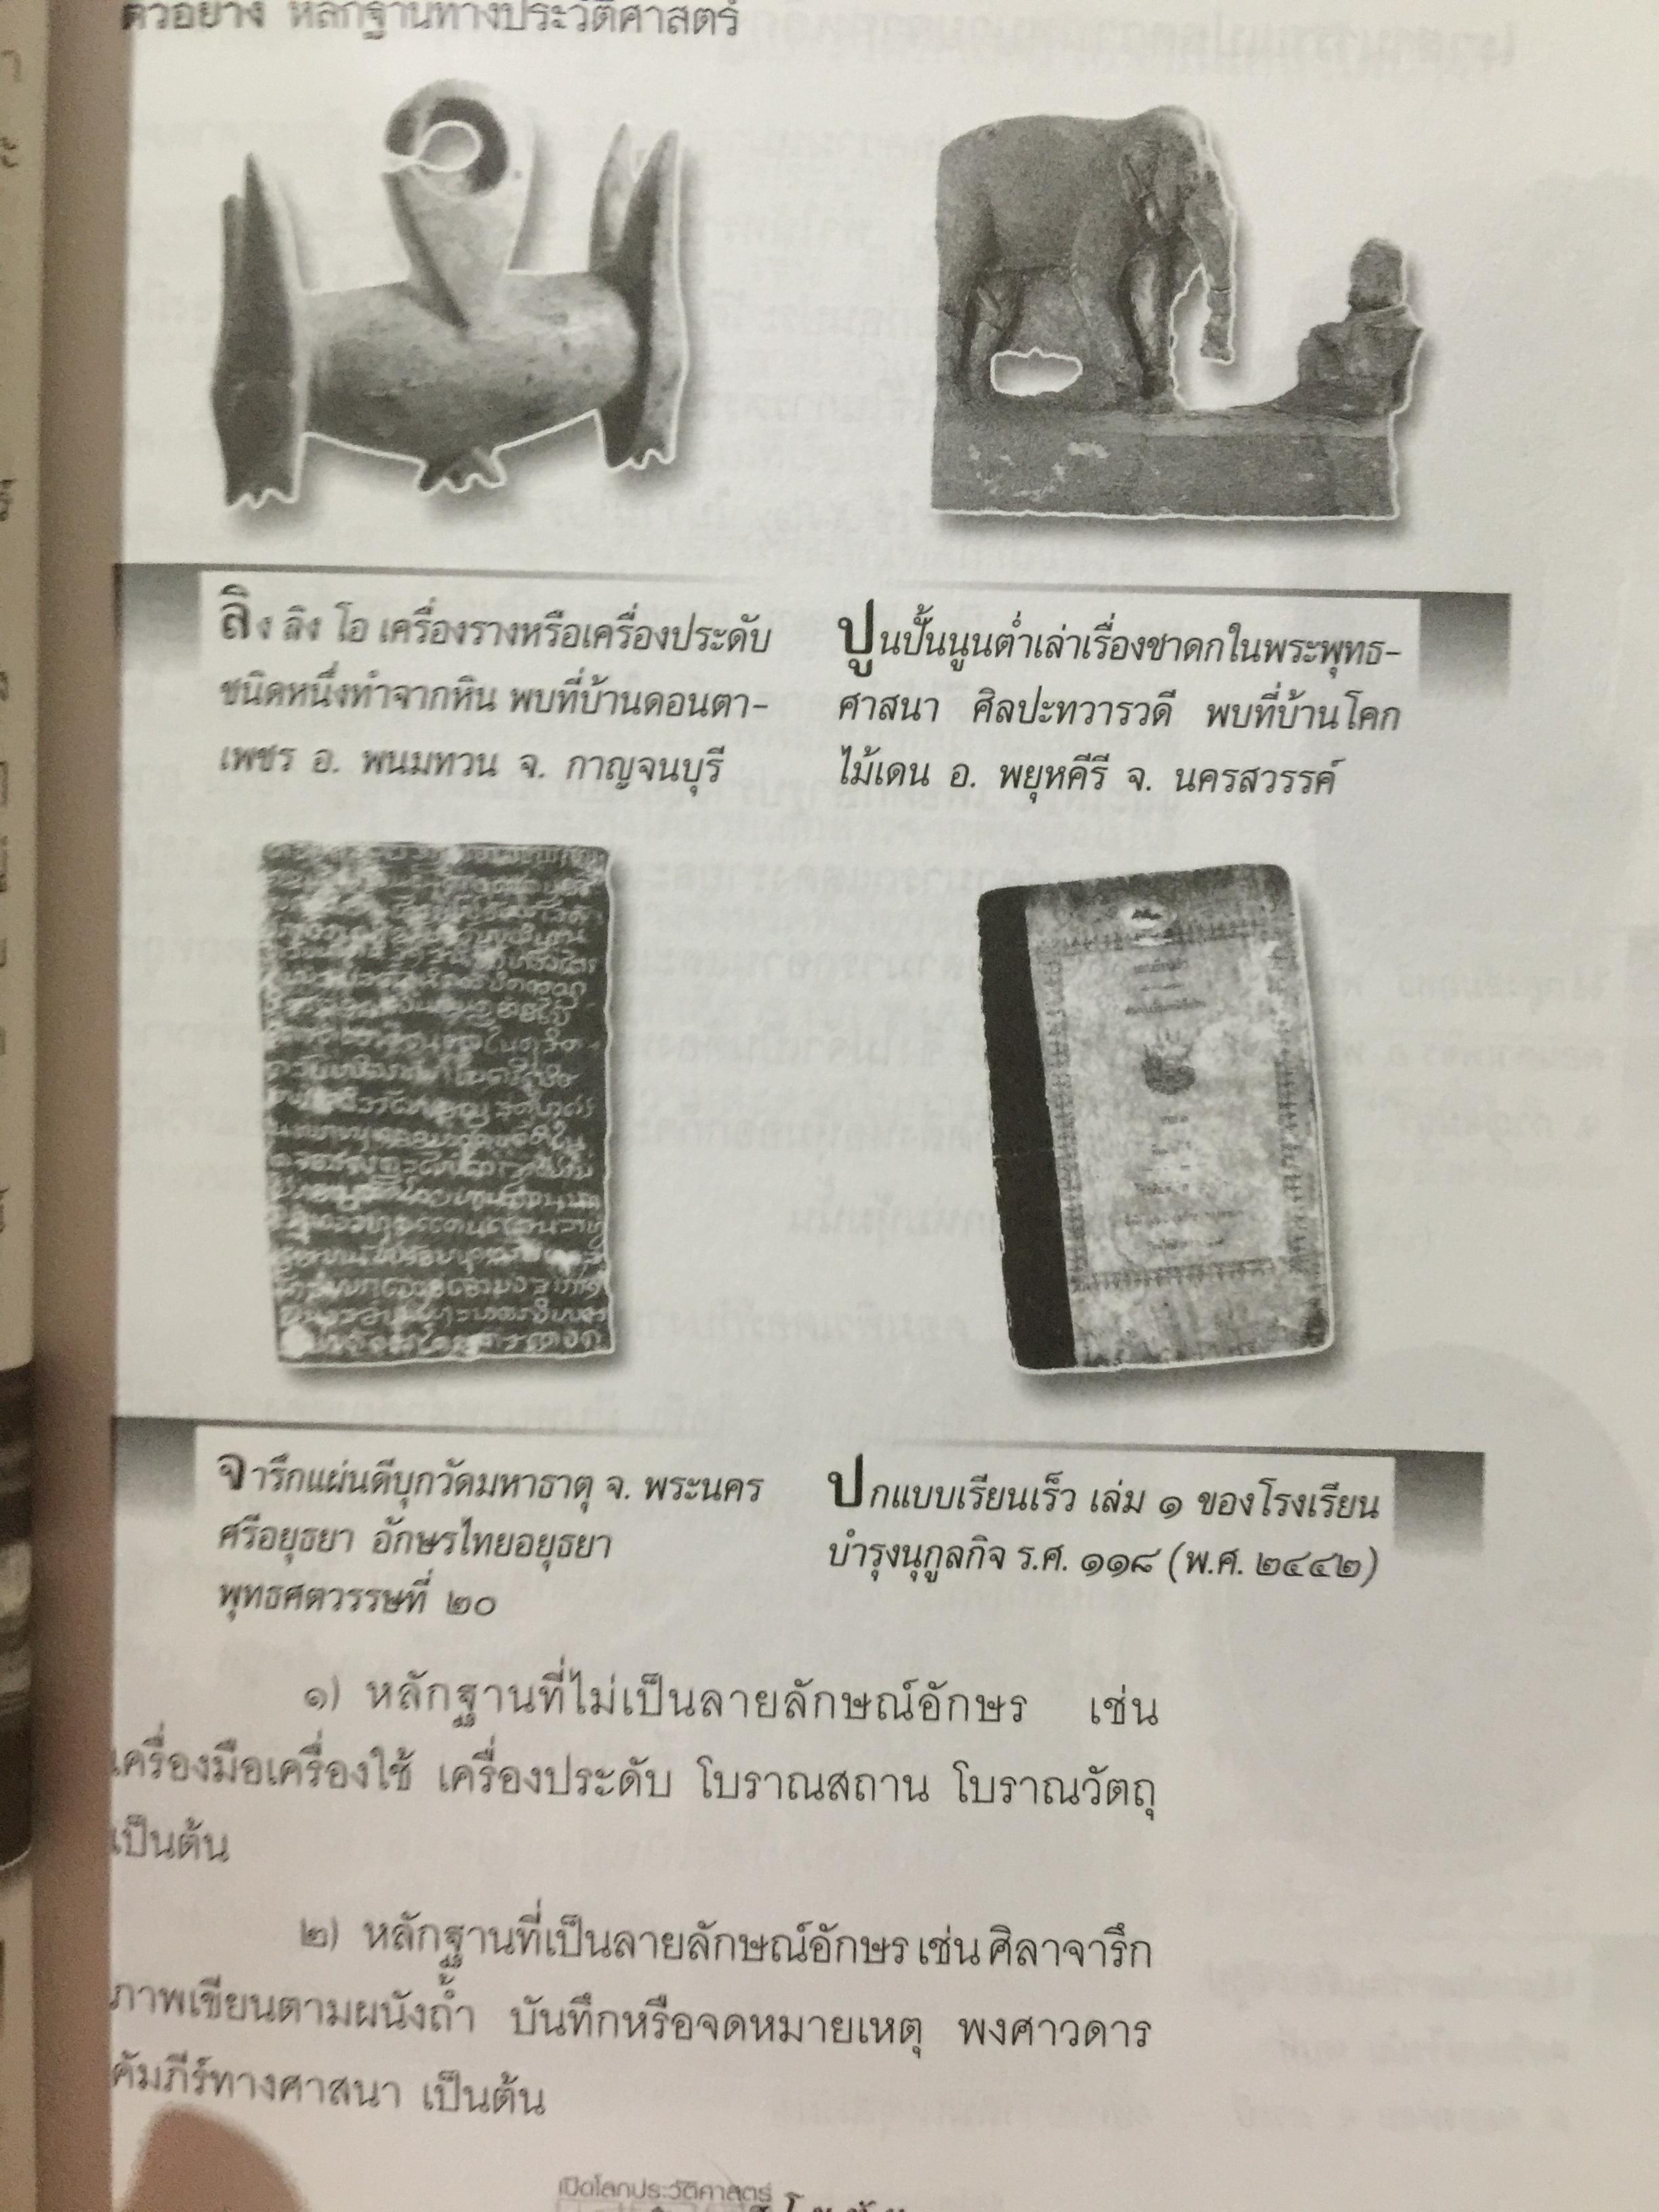 ตัวอย่าง หลักฐานทางประวัติศาสตร์
ลิง ลิง โอ เครื่องรางหรือเครื่องประดับ
ชนิดหนึ่งทำจากหิน พบที่บ้านดอนตา-
เพชร อ. พนมทวน จ. กาญจนบุรี
ปูนปั้นนูนต่ำเล่าเรื่องชาดกในพระพุทธ-
ศาสนา ศิลปะทวารวดี พบที่บ้านโคก
ไม้เดน อ. พยุหคีรี จ. นครสวรรค์
จารึกแผ่นดีบุกวัดมหาธาตุ จ. พระนคร
ศรีอยุธยา อักษรไทยอยุธยา
พุทธศตวรรษที่ ๒๐
ปกแบบเรียนเร็ว เล่ม ๑ ของโรงเรียน
บำรุงนุกูลกิจ ร.ศ. ๑๑๘ (พ.ศ. ๒๔๔๒)
๑) หลักฐานที่ไม่เป็นลายลักษณ์อักษร เช่น
เครื่องมือเครื่องใช้ เครื่องประดับ โบราณสถาน โบราณวัตถุ
เป็นต้น
๒) หลักฐานที่เป็นลายลักษณ์อักษร เช่น ศิลาจารึก
ภาพเขียนตามผนังถ้ำ บันทึกหรือจดหมายเหตุ พงศาวดาร
คัมภีร์ทางศาสนา เป็นต้น
เปิดโลกประวัติศาสตร์